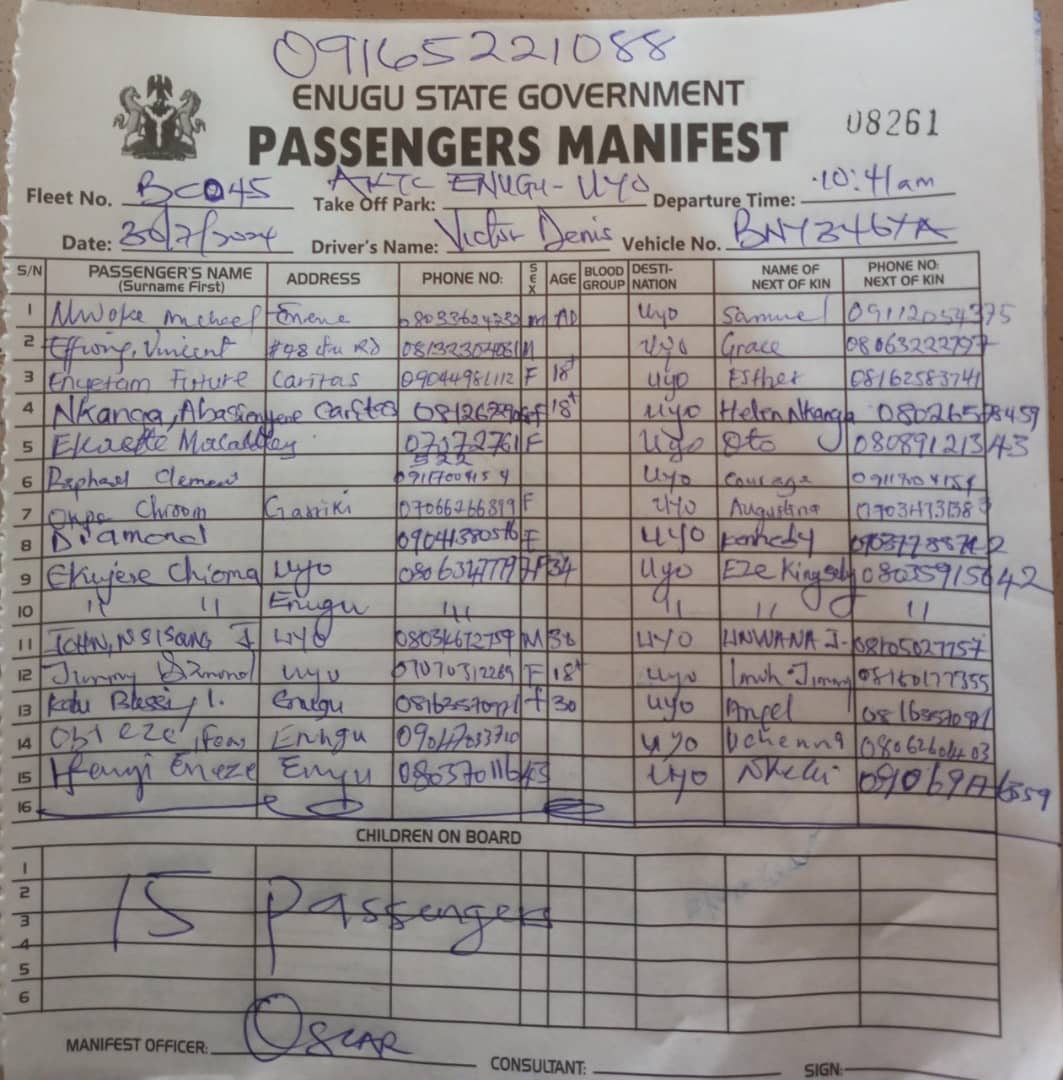 09165221088
ENUGU STATE GOVERNMENT
PASSENGERS MANIFEST 08261
Fleet No. BC045 Take Off Park: AKTC ENUGU-UYO Departure Time: 10:41am
Date: 30/7/2024 Driver's Name: Victor Denis Vehicle No. BNY346YA
S/N PASSENGER'S NAME (Surname First) ADDRESS PHONE NO: SEX AGE BLOOD GROUP DESTI-NATION NAME OF NEXT OF KIN PHONE NO: NEXT OF KIN
1 Nwoke Michael Enene 08033624232 m AD Uyo Samuel
2 Effiong, Vincent M Uyo Grace 08063222797
3 Enyetam Future Caritas 09044981112 F 18+ Uyo Esther 08162583741
4 Nkanga, Caritas F 18+ Uyo Helen Nkanga
5 Ekaette 07072761 522 F Uyo Oto 08089121343
6 Raphael Clement Uyo Courage
7 Okpe Chroom Garriki 07066266899 F Uyo Augustina
8 Diamond F UYO Kennedy
9 Ekujere Chioma Uyo F 34 Uyo Eze Kingsely 08035915642
10 " " Enugu " " " "
11 JOHN, NSISONG J. UYO 08034672759 M 38 UYO UNWANA J. 08105027757
12 Jimmy Uyo 07070312269 F 18+ Uyo Imoh Jimmy 08160177355
13 Kalu Blessing I. Enugu F 30 Uyo Angel
14 Obi eze, Enugu Uyo Uchenna
15 Ifeanyi Eneze Enugu Uyo Nkechi
16
CHILDREN ON BOARD
1
2
3
4
5
6
15 Passengers
MANIFEST OFFICER: Oscar CONSULTANT: SIGN: